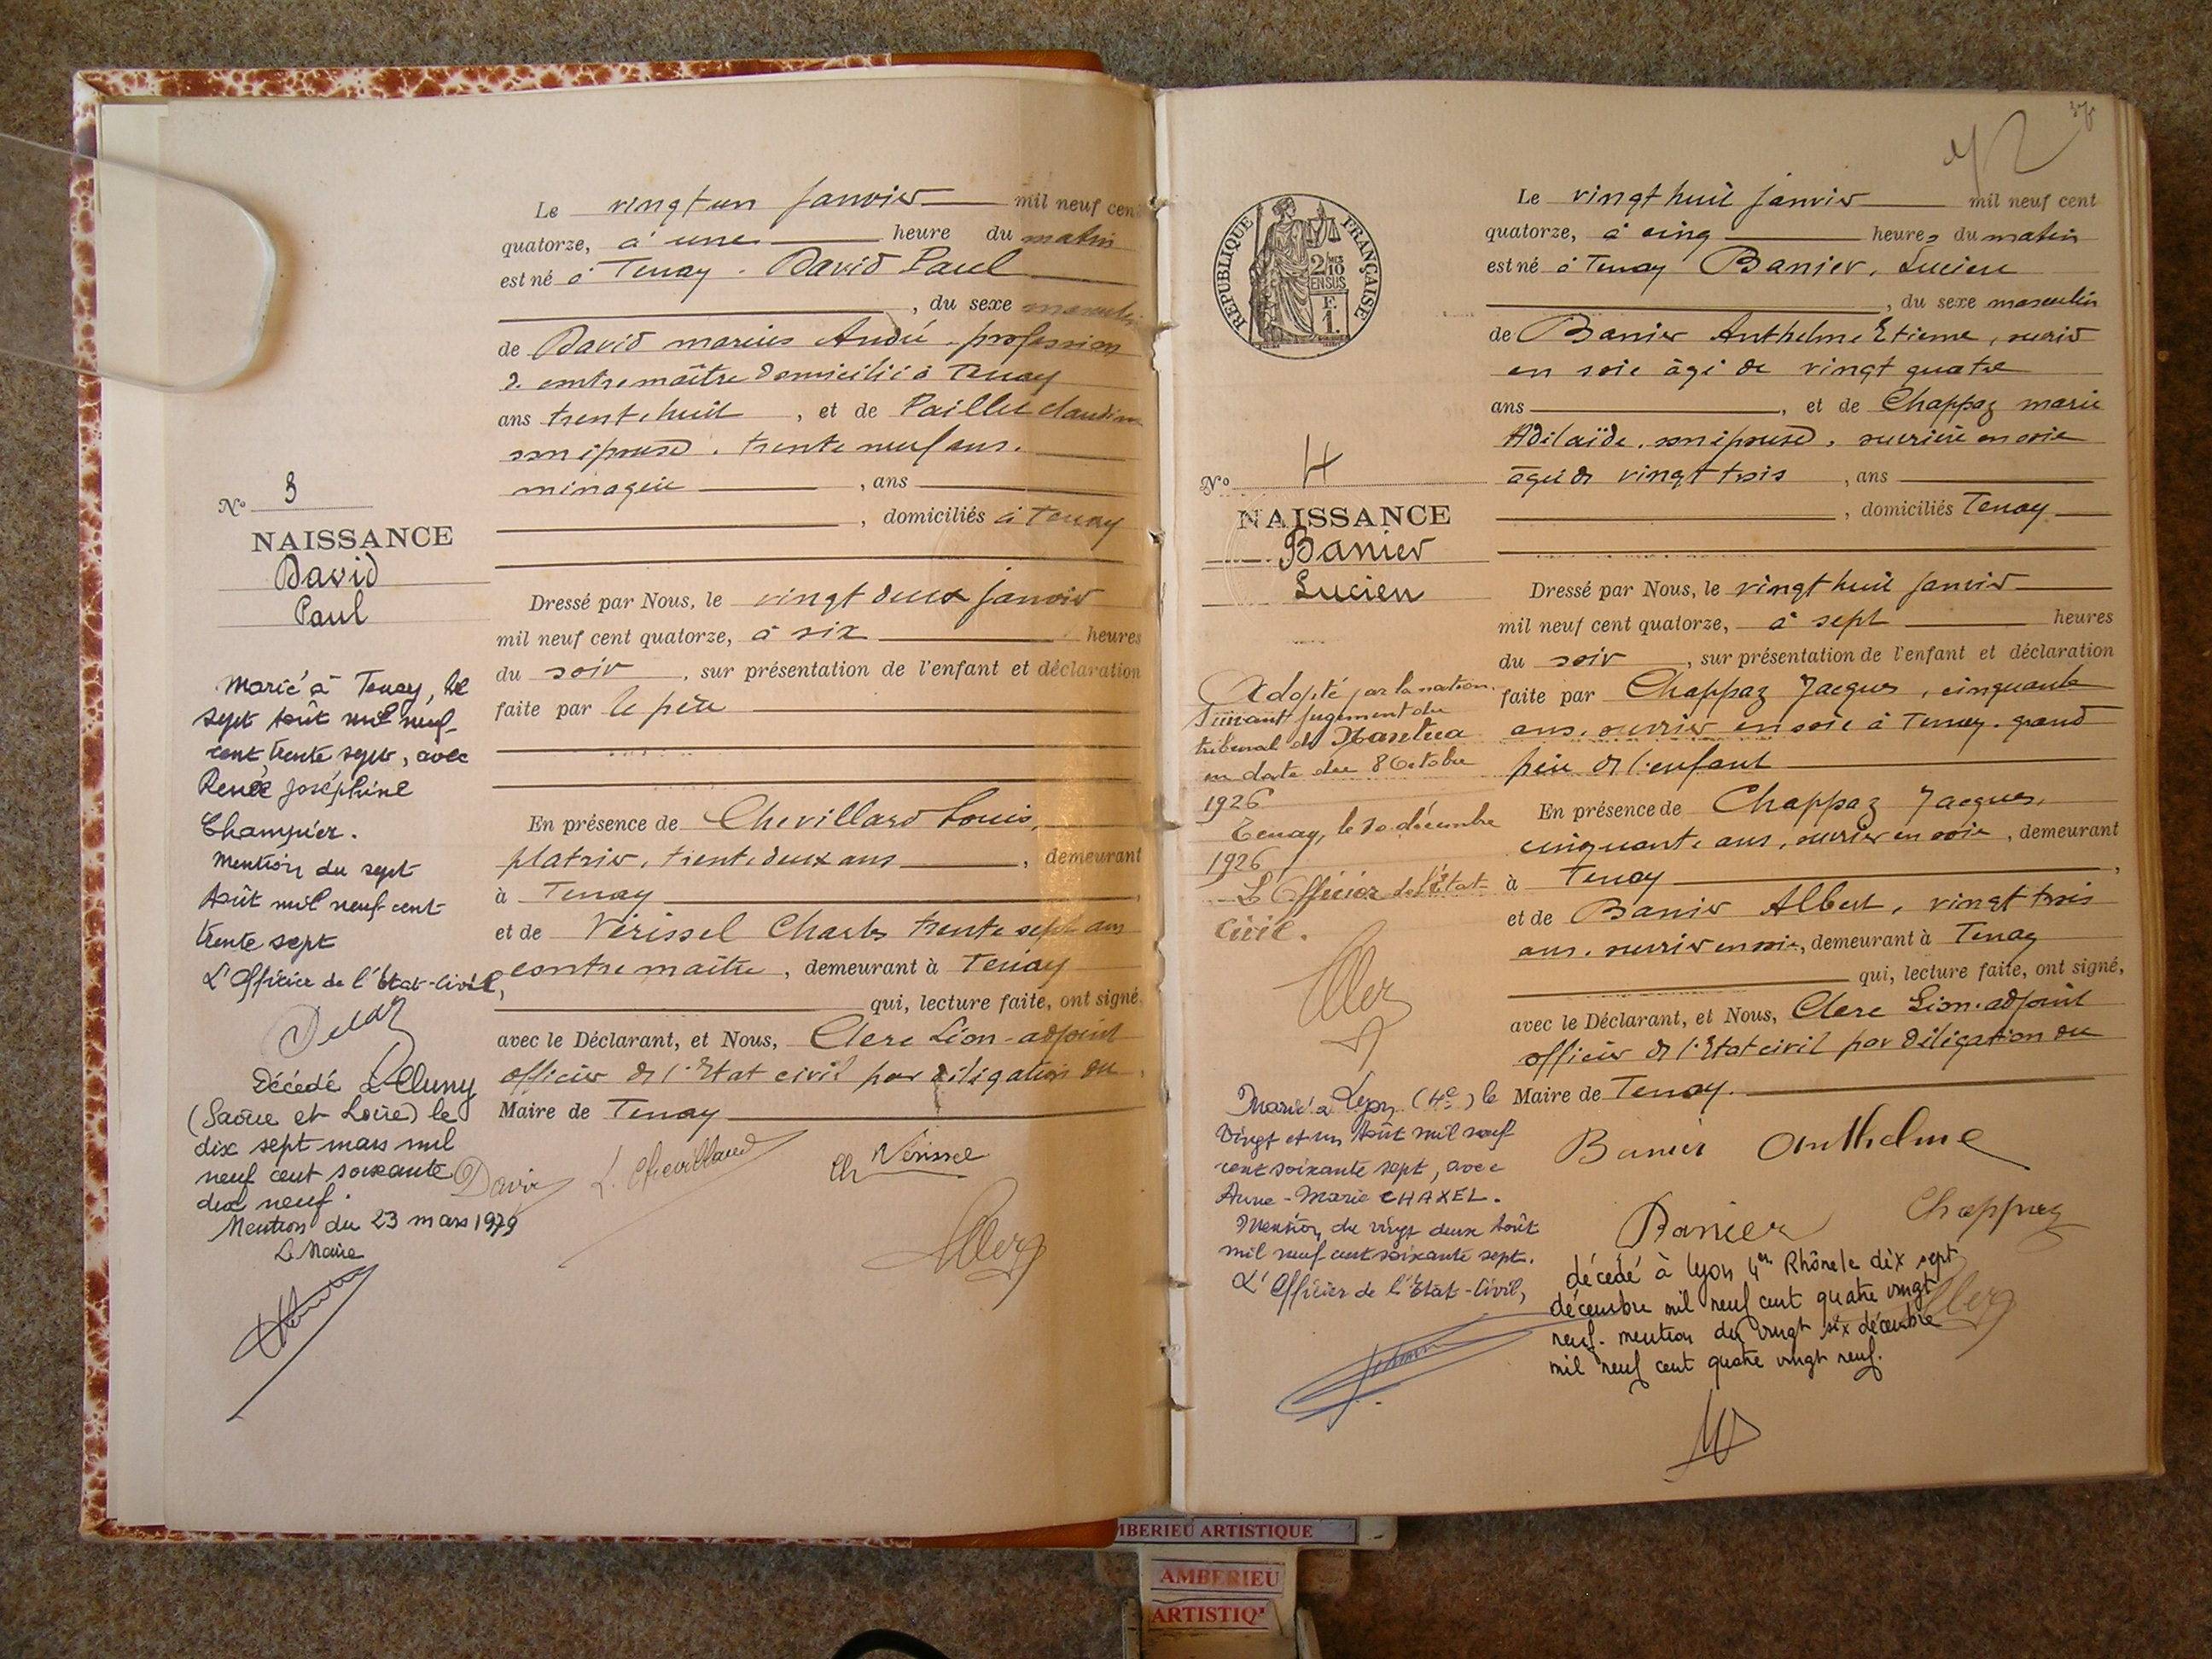 Le vingt un janvier mil neuf cent
quatorze, à une heure du matin
est né à Tenay. David Paul
, du sexe masculin
de David marius André. profession
de contremaître domicilié à Tenay
ans trente huit , et de Paillet claudine
son épouse. trente neuf ans.
ménagère , ans
, domiciliés à Tenay
N° 3
NAISSANCE
David
Paul
Dressé par Nous, le vingt deux janvier
mil neuf cent quatorze, à six heures
du soir , sur présentation de l'enfant et déclaration
faite par le père
En présence de Chevillard Louis,
platrier, trente deux ans , demeurant
à Tenay
et de Vérissel Charles trente sept ans
contremaître, demeurant à Tenay
qui, lecture faite, ont signé
avec le Déclarant, et Nous, Clerc Léon - adjoint
officier de l'Etat civil par délégation du
Maire de Tenay
David L. Chevillard Ch Vérissel
Clerc
Marié à Tenay, le
sept Août mil neuf-
cent trente sept, avec
Renée Joséphine
Champier.
Mention du sept
Août mil neuf-cent
trente sept
L'Officier de l'Etat-Civil,
Décédé à Cluny
(Saône et Loire) le
dix sept mars mil
neuf cent soixante
dix neuf.
Mention du 23 mars 1979
Le Maire
Le vingt huit janvier mil neuf cent
quatorze, à cinq heures du matin
est né à Tenay Banier, Lucien
, du sexe masculin
de Banier Anthelme Etienne, ouvrier
en soie âgé de vingt quatre
ans , et de Chappaz marie
Adélaïde, son épouse, ouvrière en soie
âgée de vingt trois , ans
, domiciliés Tenay
RÉPUBLIQUE FRANÇAISE
2/10 MES
EN SUS
F.
1.
N° 4
NAISSANCE
Banier
Lucien
Dressé par Nous, le vingt huit janvier
mil neuf cent quatorze, à sept heures
du soir , sur présentation de l'enfant et déclaration
faite par Chappaz Jacques, cinquante
ans. ouvrier en soie à Tenay. grand
père de l'enfant
En présence de Chappaz Jacques,
cinquante ans, ouvrier en soie, demeurant
à Tenay ,
et de Banier Albert, vingt trois
ans. ouvrier en soie, demeurant à Tenay
qui, lecture faite, ont signé,
avec le Déclarant, et Nous, Clerc Léon. adjoint
officier de l'Etat civil par délégation du
Maire de Tenay.
Banier Anthelme
Banier Chappaz
Clerc
Adopté par la nation.
Suivant jugement du
tribunal de Nantua
en date du 8 Octobre
1926
Tenay, le 10 décembre
1926
L'Officier de l'État
Civil.
Marié à Lyon (4e) le
Vingt et un Août mil neuf
cent soixante sept, avec
Anne-Marie CHAXEL.
Mention du vingt deux Août
mil neuf cent soixante sept.
L'Officier de l'Etat-Civil,
décédé à Lyon 4e Rhône le dix sept
décembre mil neuf cent quatre vingt
neuf. mention du vingt six décembre
mil neuf cent quatre vingt neuf.
MBERIEU ARTISTIQUE
AMBERIEU
ARTISTIQ